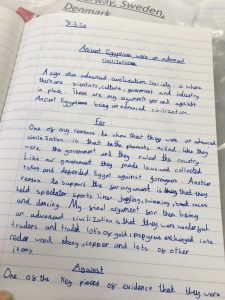 Norway, Sweden,
Denmark
Ancient Egyptians were an advanced
civilization
A sign of an advanced civilization society is where
there are scientists, culture, government and industry
in place. These are my arguments for and against
Ancient Egyptians being an advanced civilization.
For
One of my reasons to show that they were an advanced
civilization is that the pharaohs acted like they
were the government and they ruled the country.
Like our government they made laws and collected
taxes and defended Egypt against foreigners. Another
reason to support the for argument is they that they
held spectator sports like juggling, swimming, boat races
and dancing. My final argument for them being
an advanced civilization is that they were wonderful
traders, and traded lots of gold, papyrus exchanged into
cedar wood, ebony, copper and lots of other
items.
Against
One of the key pieces of evidence that they were